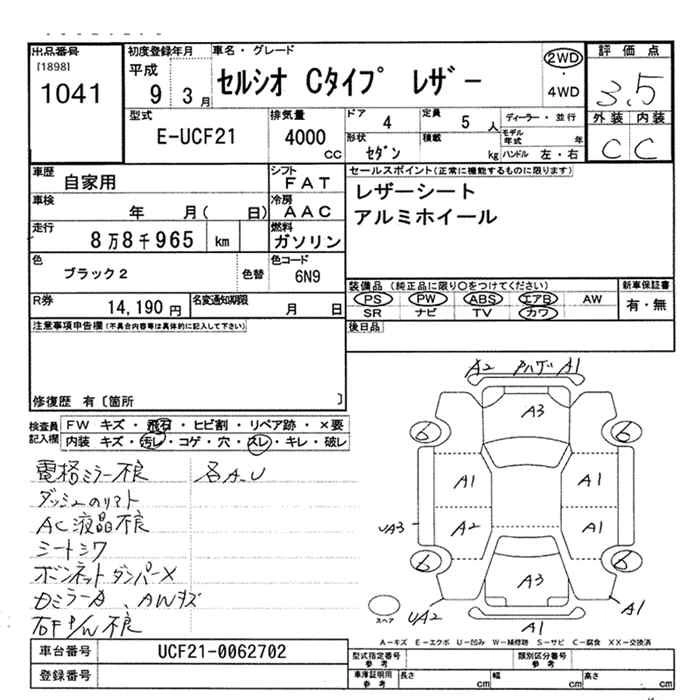 出品番号
[1898]
1041
初度登録年月
平成
9 3月
車名・グレード
セルシオ Cタイプ レザー
2WD
・
4WD
評価点
3.5
外装 内装
C C
型式
E-UCF21
排気量
4000
CC
ドア 4
定員 5人
ディーラー・並行
形状 セダン
積載 kg
モデル年式 年
ハンドル 左・右
車歴 自家用
シフト FAT
セールスポイント(正常に機能するものに限ります)
レザーシート
アルミホイール
車検 年 月( 日)
冷房 AAC
走行 8万8千965 km
燃料 ガソリン
色 ブラック2 色替
色コード 6N9
装備品 (純正品に限り○をつけてください)
PS PW ABS エアB AW
SR ナビ TV カワ
新車保証書
有・無
R券 14,190円
名変通知期限 月 日
後日品
注意事項申告欄(不具合内容等は具体的に記入して下さい)
修復歴 有〔箇所 〕
検査員記入欄
FW キズ・飛石・ヒビ割・リペア跡・×要
内装 キズ・汚レ・コゲ・穴・スレ・キレ・破レ
電格ミラー不良 各A.U
ダッシュのリマト
AC液晶不良
シートシワ
ボンネットダンパーX
AWキズ
右F P/W不良
A2 A1
A3
6 6
A1 A1
UA3 A2 A1
6 6
A3
スペア
UA2 A1
A1
A-キズ E-エクボ U-凹み W-補修跡 S-サビ C-腐食 XX-交換済
車台番号 UCF21-0062702
登録番号
型式指定番号
参考
類別区分番号
参考
車庫証明用
参考
長さ cm 幅 cm 高さ cm